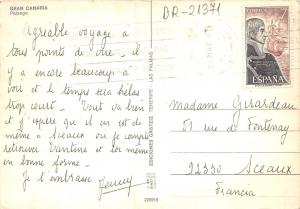 GRAN CANARIA
Paisaje
BR-21371
Agréable voyage à
tous points de vue - il
y a encore beaucoup à
voir et le temps sera hélas
trop court. Tout va bien
et j'espère qu'il en est de
même à Sceaux où je compte
retrouver Tantine et toi même
en bonne forme -
Je t'embrasse Jenny
EDICIONES GASTEIZ TENERIFE - LAS PALMAS
ESPAÑA
Madame Girardeau
51 rue de Fontenay
92330 Sceaux
Francia